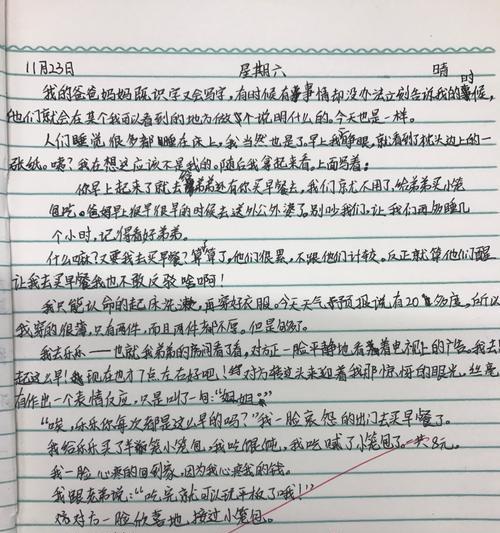 11月23日 星期六 晴
我的爸爸妈妈既识字又会写字,有时候有事情却没办法立刻告诉我的时候,
他们就会在某个我可以看到的地方做个说明什么的。今天也是一样。
人们睡觉很多都睡在床上,我当然也是了。早上我睁眼,就看到了枕头边上的一
张纸。咦?我在想这应该不是我的。随后我拿起来看,上面写着:
你早上起来了就去给弟弟还有你买早餐去,我们就不用了,给弟弟买小笼
包吃。爸妈早上很早很早的时候去送外公外婆了。别吵我们,让我们再多睡几
个小时,记得看好弟弟。
什么嘛?又要我去买早餐?算了算了,他们很累,不跟他们计较。反正就算他们醒
让我去买早餐我也不敢反驳啥啊!
我只能认命的起床洗漱,再穿好衣服。今天天气预报说有20多度,所以
我穿的很薄,只有两件,而且两件都不厚。但是够了。
我去乐乐——也就我弟弟的房间看了看,对方正一脸平静地看着电视上的广告。我去!
起这么早!现在也才7点左右好吧!对方转过头来迎着我那惊讶的眼光,丝毫
有作出一个表情反应,只是叫了一句:“姐姐。”
“唉,乐乐你每次都是这么早的吗?”我一脸哀怨的出门去买早餐了。
我给乐乐买了半笼小笼包,我吃腻了小笼包了。一共8元。
我一脸心疼的回到家,因为我心疼我的钱。
我跟弟弟说:“吃完就可以玩平板了哦!”
对方一脸欣喜地,接过小笼包。